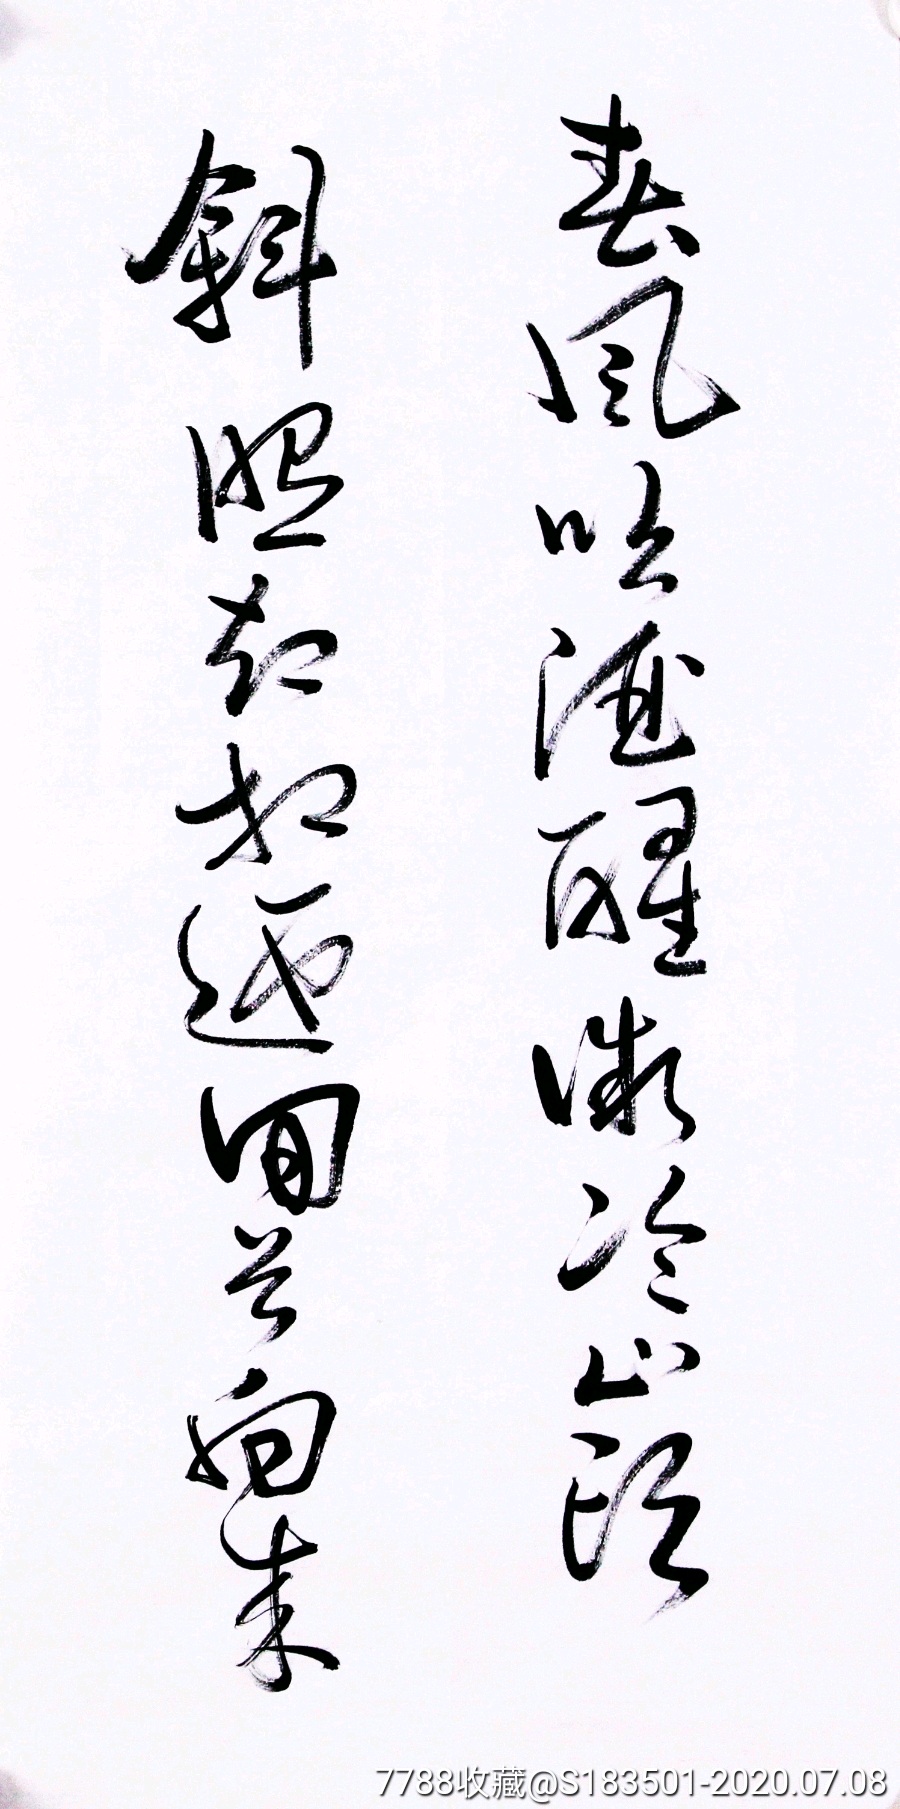 春风吹酒醒微冷山头
斜照却相迎回首向来
7788收藏@S183501-2020.07.08